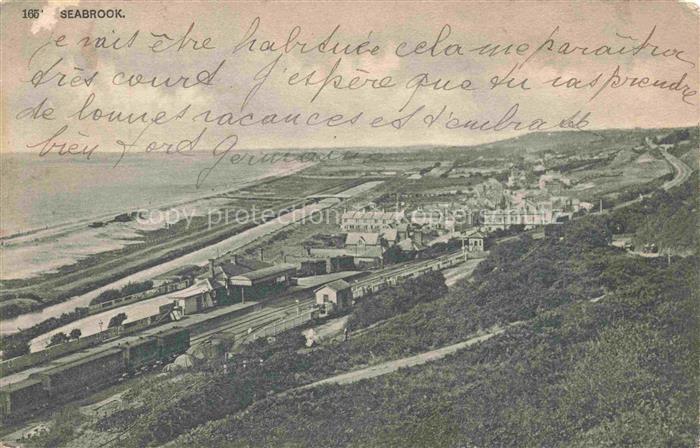 165 SEABROOK.
je vais être habituée cela me paraîtra
très court J'espère que tu vas prendre
de bonnes vacances et t'embrasse
bien fort Germaine
copy protection